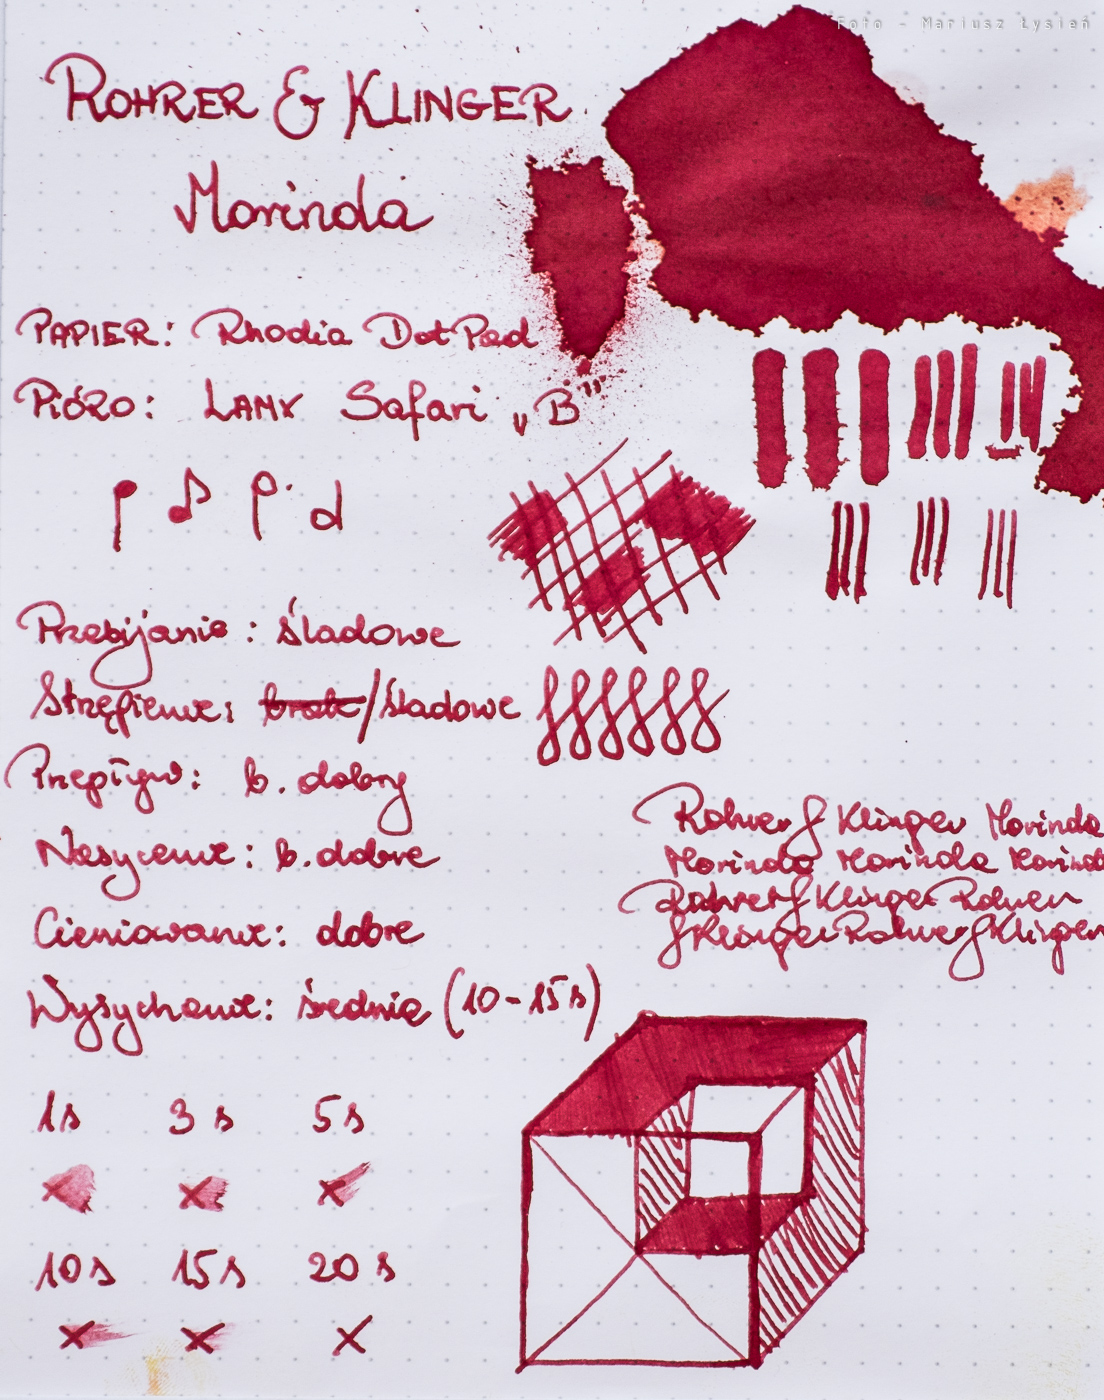 Foto - Mariusz Łysień
ROHRER & KLINGER
Morinda
PAPIER: Rhodia DotPad
PIÓRO: LAMY Safari „B”
Przebijanie: śladowe
Strzępienie: brak/śladowe
Przepływ: b. dobry
Nasycenie: b. dobre
Cieniowanie: dobre
Wysychanie: średnie (10-15s)
Rohrer & Klinger Morinda
Morinda Morinda Morinda
Rohrer & Klinger Rohrer
& Klinger Rohrer & Klinger
1s 3s 5s
10s 15s 20s